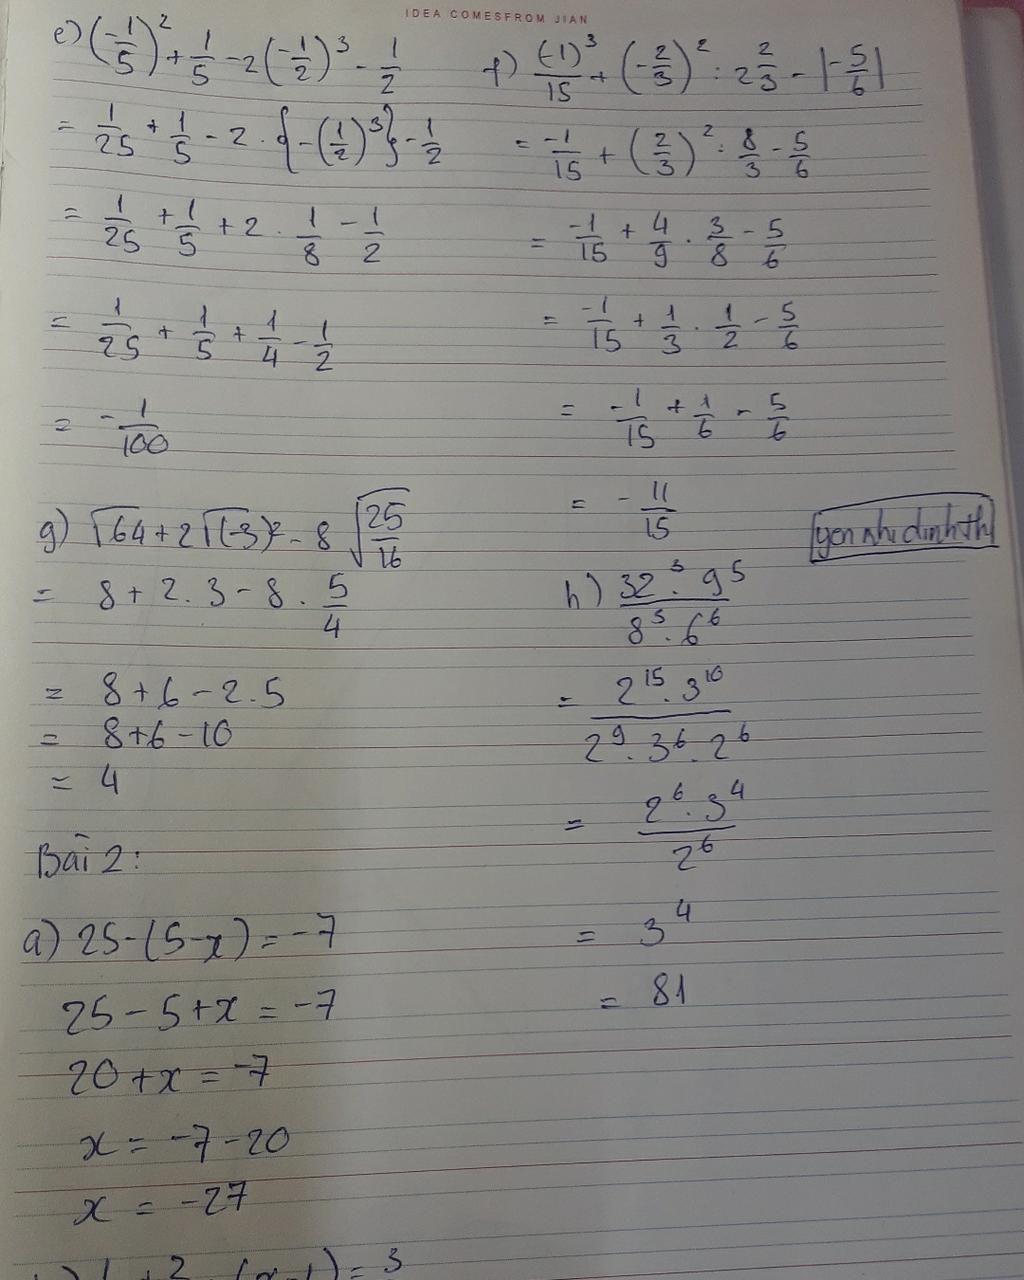 IDEA COMESFROM JIAN
e) (-1/5)² + 1/5 - 2(-1/2)³ - 1/2
= 1/25 + 1/5 - 2 . {-(1/2)³} - 1/2
= 1/25 + 1/5 + 2 . 1/8 - 1/2
= 1/25 + 1/5 + 1/4 - 1/2
= -1/100
f) (-1)³/15 + (-2/3)² : 2 2/3 - |-5/6|
= -1/15 + (2/3)² : 8/3 - 5/6
= -1/15 + 4/9 . 3/8 - 5/6
= -1/15 + 1/3 . 1/2 - 5/6
= -1/15 + 1/6 - 5/6
= -11/15
yen nhi dinh thi
g) √64 + 2√(-3)² - 8 √25/16
= 8 + 2.3 - 8 . 5/4
= 8 + 6 - 2.5
= 8+6-10
= 4
h) 32³ . 9⁵ / 8³ . 6⁶
= 2¹⁵ . 3¹⁰ / 2⁹ . 3⁶ . 2⁶
= 2⁶ . 3⁴ / 2⁶
= 3⁴
= 81
Bài 2:
a) 25-(5-x) = -7
25 - 5 + x = -7
20 + x = -7
x = -7 - 20
x = -27